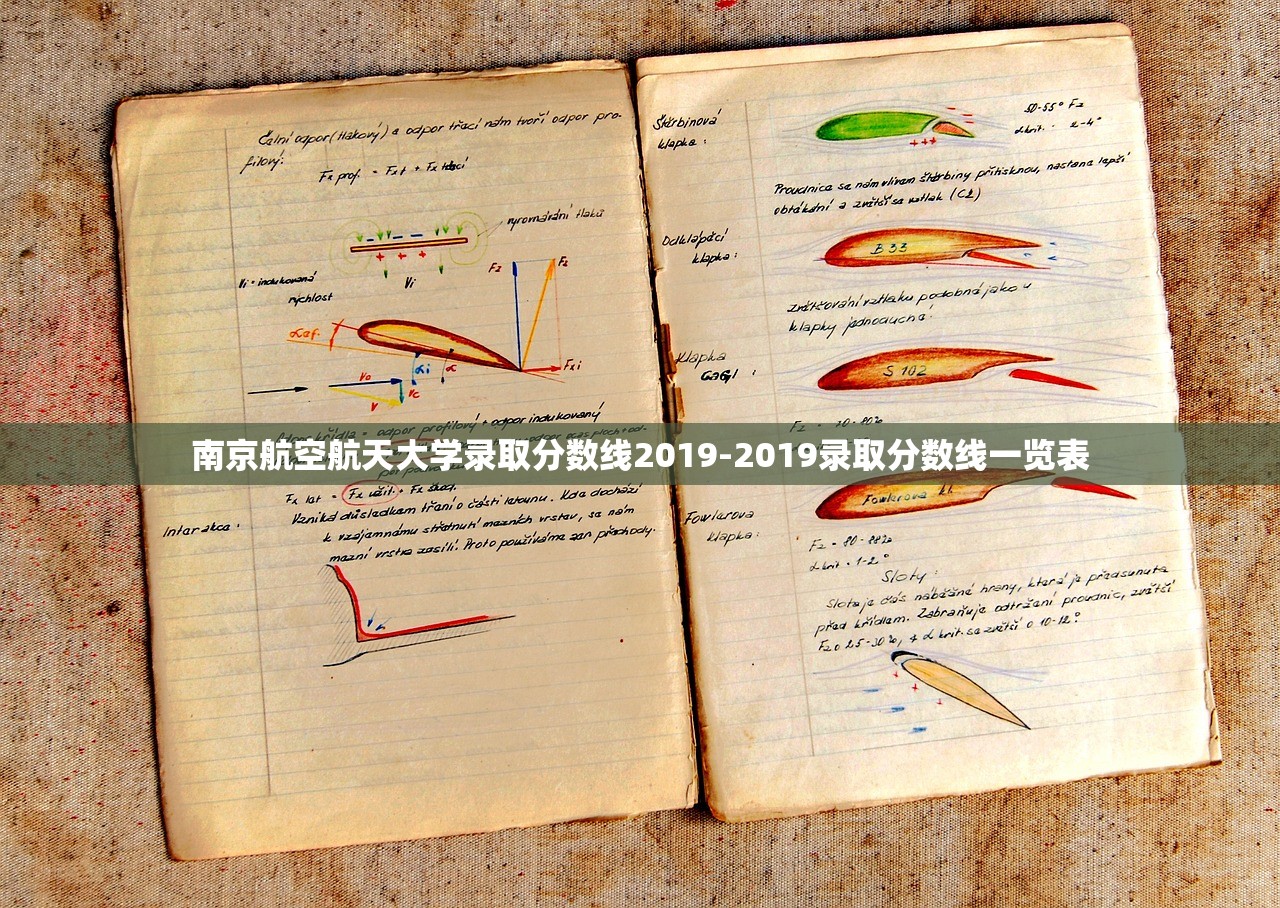 Čelní odpor (tlakový) a odpor třecí nám tvoří odpor pro-
filový:
Fx prof. = Fx t + Fx třecí
vyrovnávání tlaků
Vi
Vi = indukovaná
rychlost
Fz
Fz
Fx i
αef.
αi
α
vo
vc
v
odpor profilový + odpor indukovaný
南京航空航天大学录取分数线2019-2019录取分数线一览表
Fx let = Fx užit. + Fx škod.
Interakce:
Vzniká důsledkem tření o části letounu. Kde dochází
k vzájemnému střetnutí mezních vrstev, se nám
mezní vrstva zesílí. Proto používáme zan přechody.
Štěrbinová
klapka:
50-55° Fz
αkrit. 2-4°
Proudnice se nám vlivem štěrbiny přitisknou, nastane lepší
obtékání a zvětší se vztlak (Cz)
Odklápěcí
klapka:
B 33
zvětšování vztlaku podobné jako u
klapky jednoduché.
Klapka
GaGl:
S 102
Fowlerova kl.
Fowlerova
klapka:
Fz = 80-88%
αkrit = 1-2°
Sloty:
Slot je část náběžné hrany, která je předsunuta
před křídlem. Zabraňuje odtržení proudnic, zvětší
Fz o 25-30%, 4 αkrit. se zvětší o 10-12°